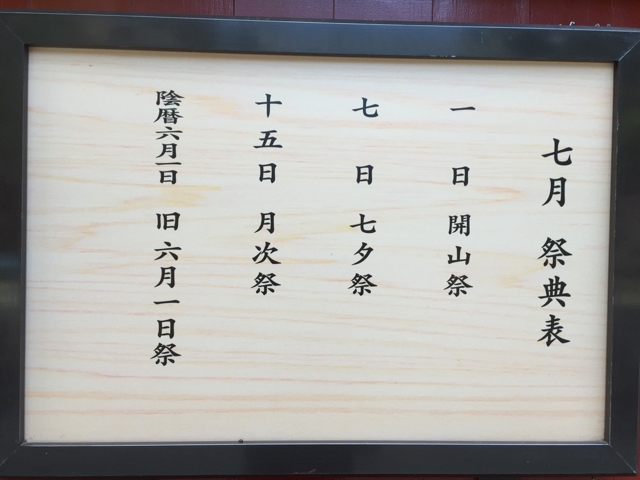 七月 祭典表
一 日 開山祭
七 日 七夕祭
十五日 月次祭
陰暦六月一日 旧六月一日祭